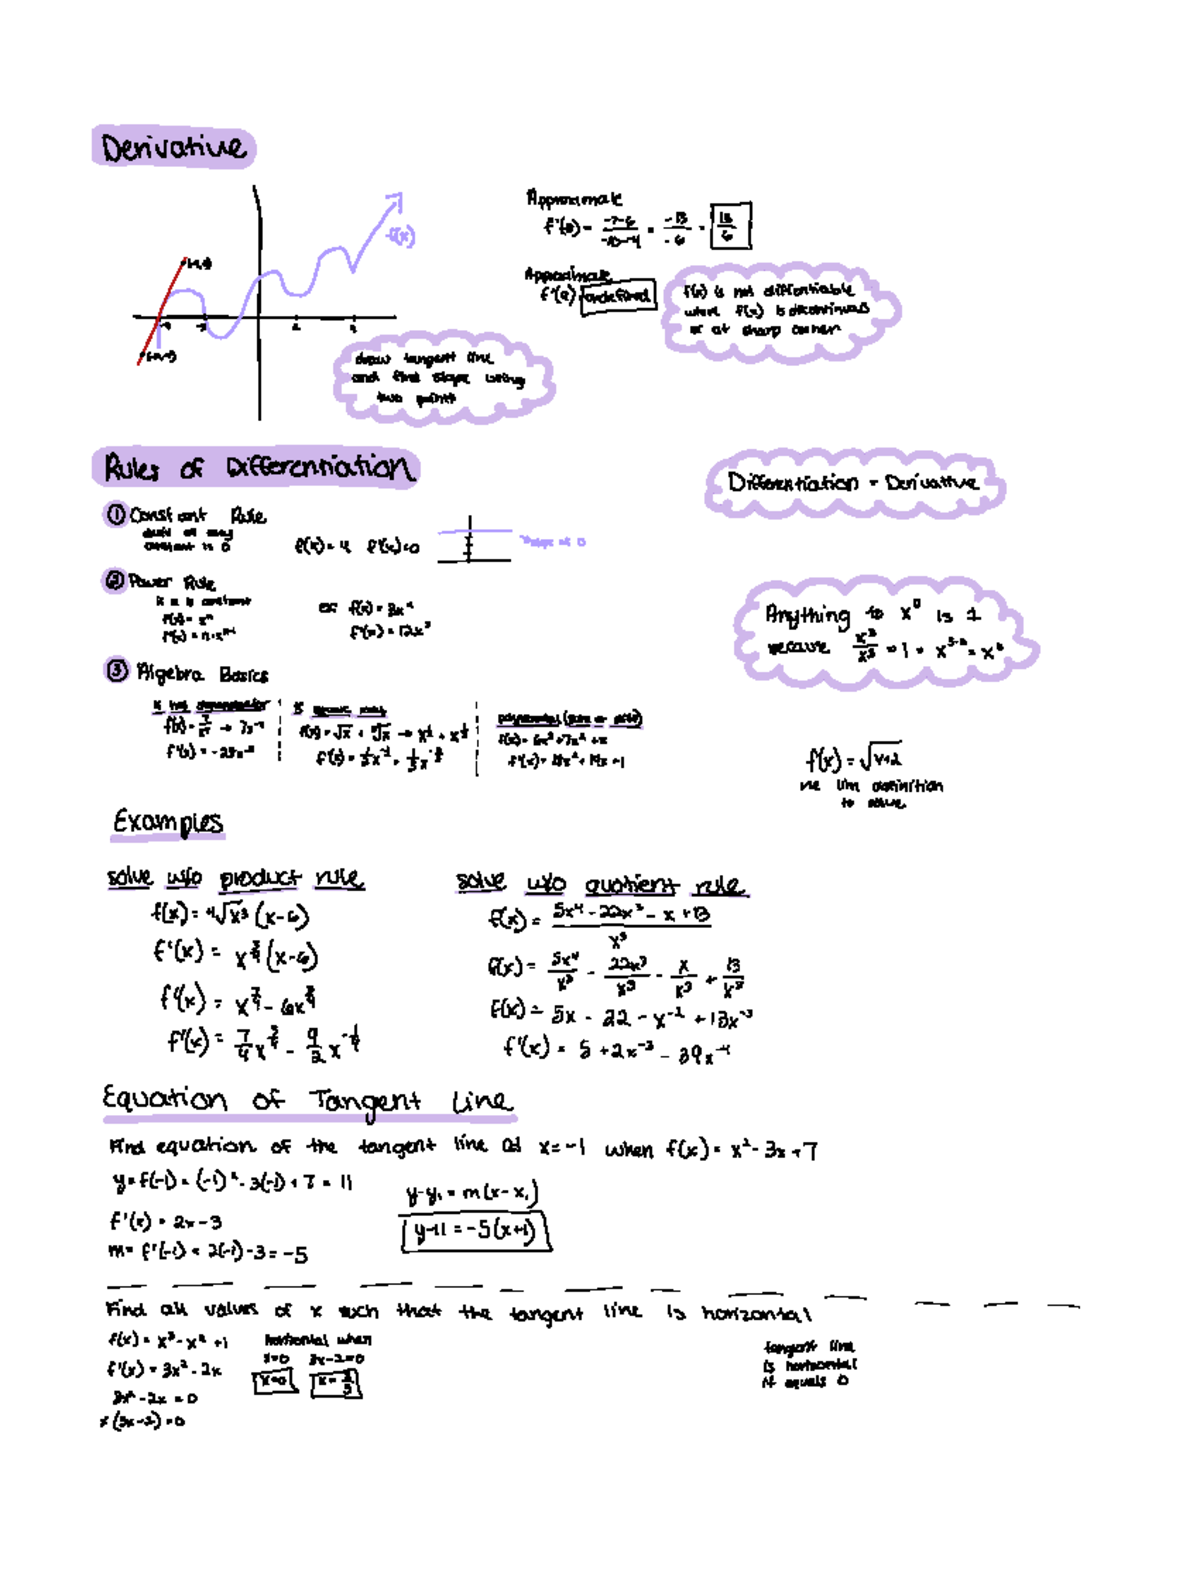 Derivative
f(x)
Approximate
draw tangent line
and find slope using
two points
Approximate
undefined
f(x) is not differentiable
where f(x) is discontinuous
or at sharp corner
Rules of Differentiation
Differentiation = Derivative
① Constant Rule
constant is 0
f(x) = 4 f'(x) = 0
② Power Rule
if n is constant
f(x) = xⁿ
f'(x) = n·xⁿ⁻¹
ex f(x) = 3x⁴
f'(x) = 12x³
Anything to x⁰ is 1
because x³/x³ = 1 = x³⁻³ = x⁰
③ Algebra Basics
if has denominator
f'(x) = √x+2
use lim definition
to solve
Examples
solve w/o product rule
f(x) = ⁴√x³ (x-6)
f'(x) = x^3/4 (x-6)
f'(x) = x^7/4 - 6x^3/4
f'(x) = 7/4 x^3/4 - 9/2 x^-1/4
solve w/o quotient rule
f(x) = 5x⁴ - 22x³ - x + 13 / x³
f(x) = 5x⁴/x³ - 22x³/x³ - x/x³ + 13/x³
f(x) = 5x - 22 - x⁻² + 13x⁻³
f'(x) = 5 + 2x⁻³ - 39x⁻⁴
Equation of Tangent Line
Find equation of the tangent line at x = -1 when f(x) = x² - 3x + 7
y = f(-1) = (-1)² - 3(-1) + 7 = 11
f'(x) = 2x - 3
m = f'(-1) = 2(-1) - 3 = -5
y - y₁ = m(x - x₁)
y - 11 = -5(x+1)
Find all values of x such that the tangent line is horizontal
f(x) = x³ - x² + 1
f'(x) = 3x² - 2x
3x² - 2x = 0
x(3x-2) = 0
horizontal when
x=0 3x-2=0
x=0 x=2/3
tangent line
is horizontal
if equals 0